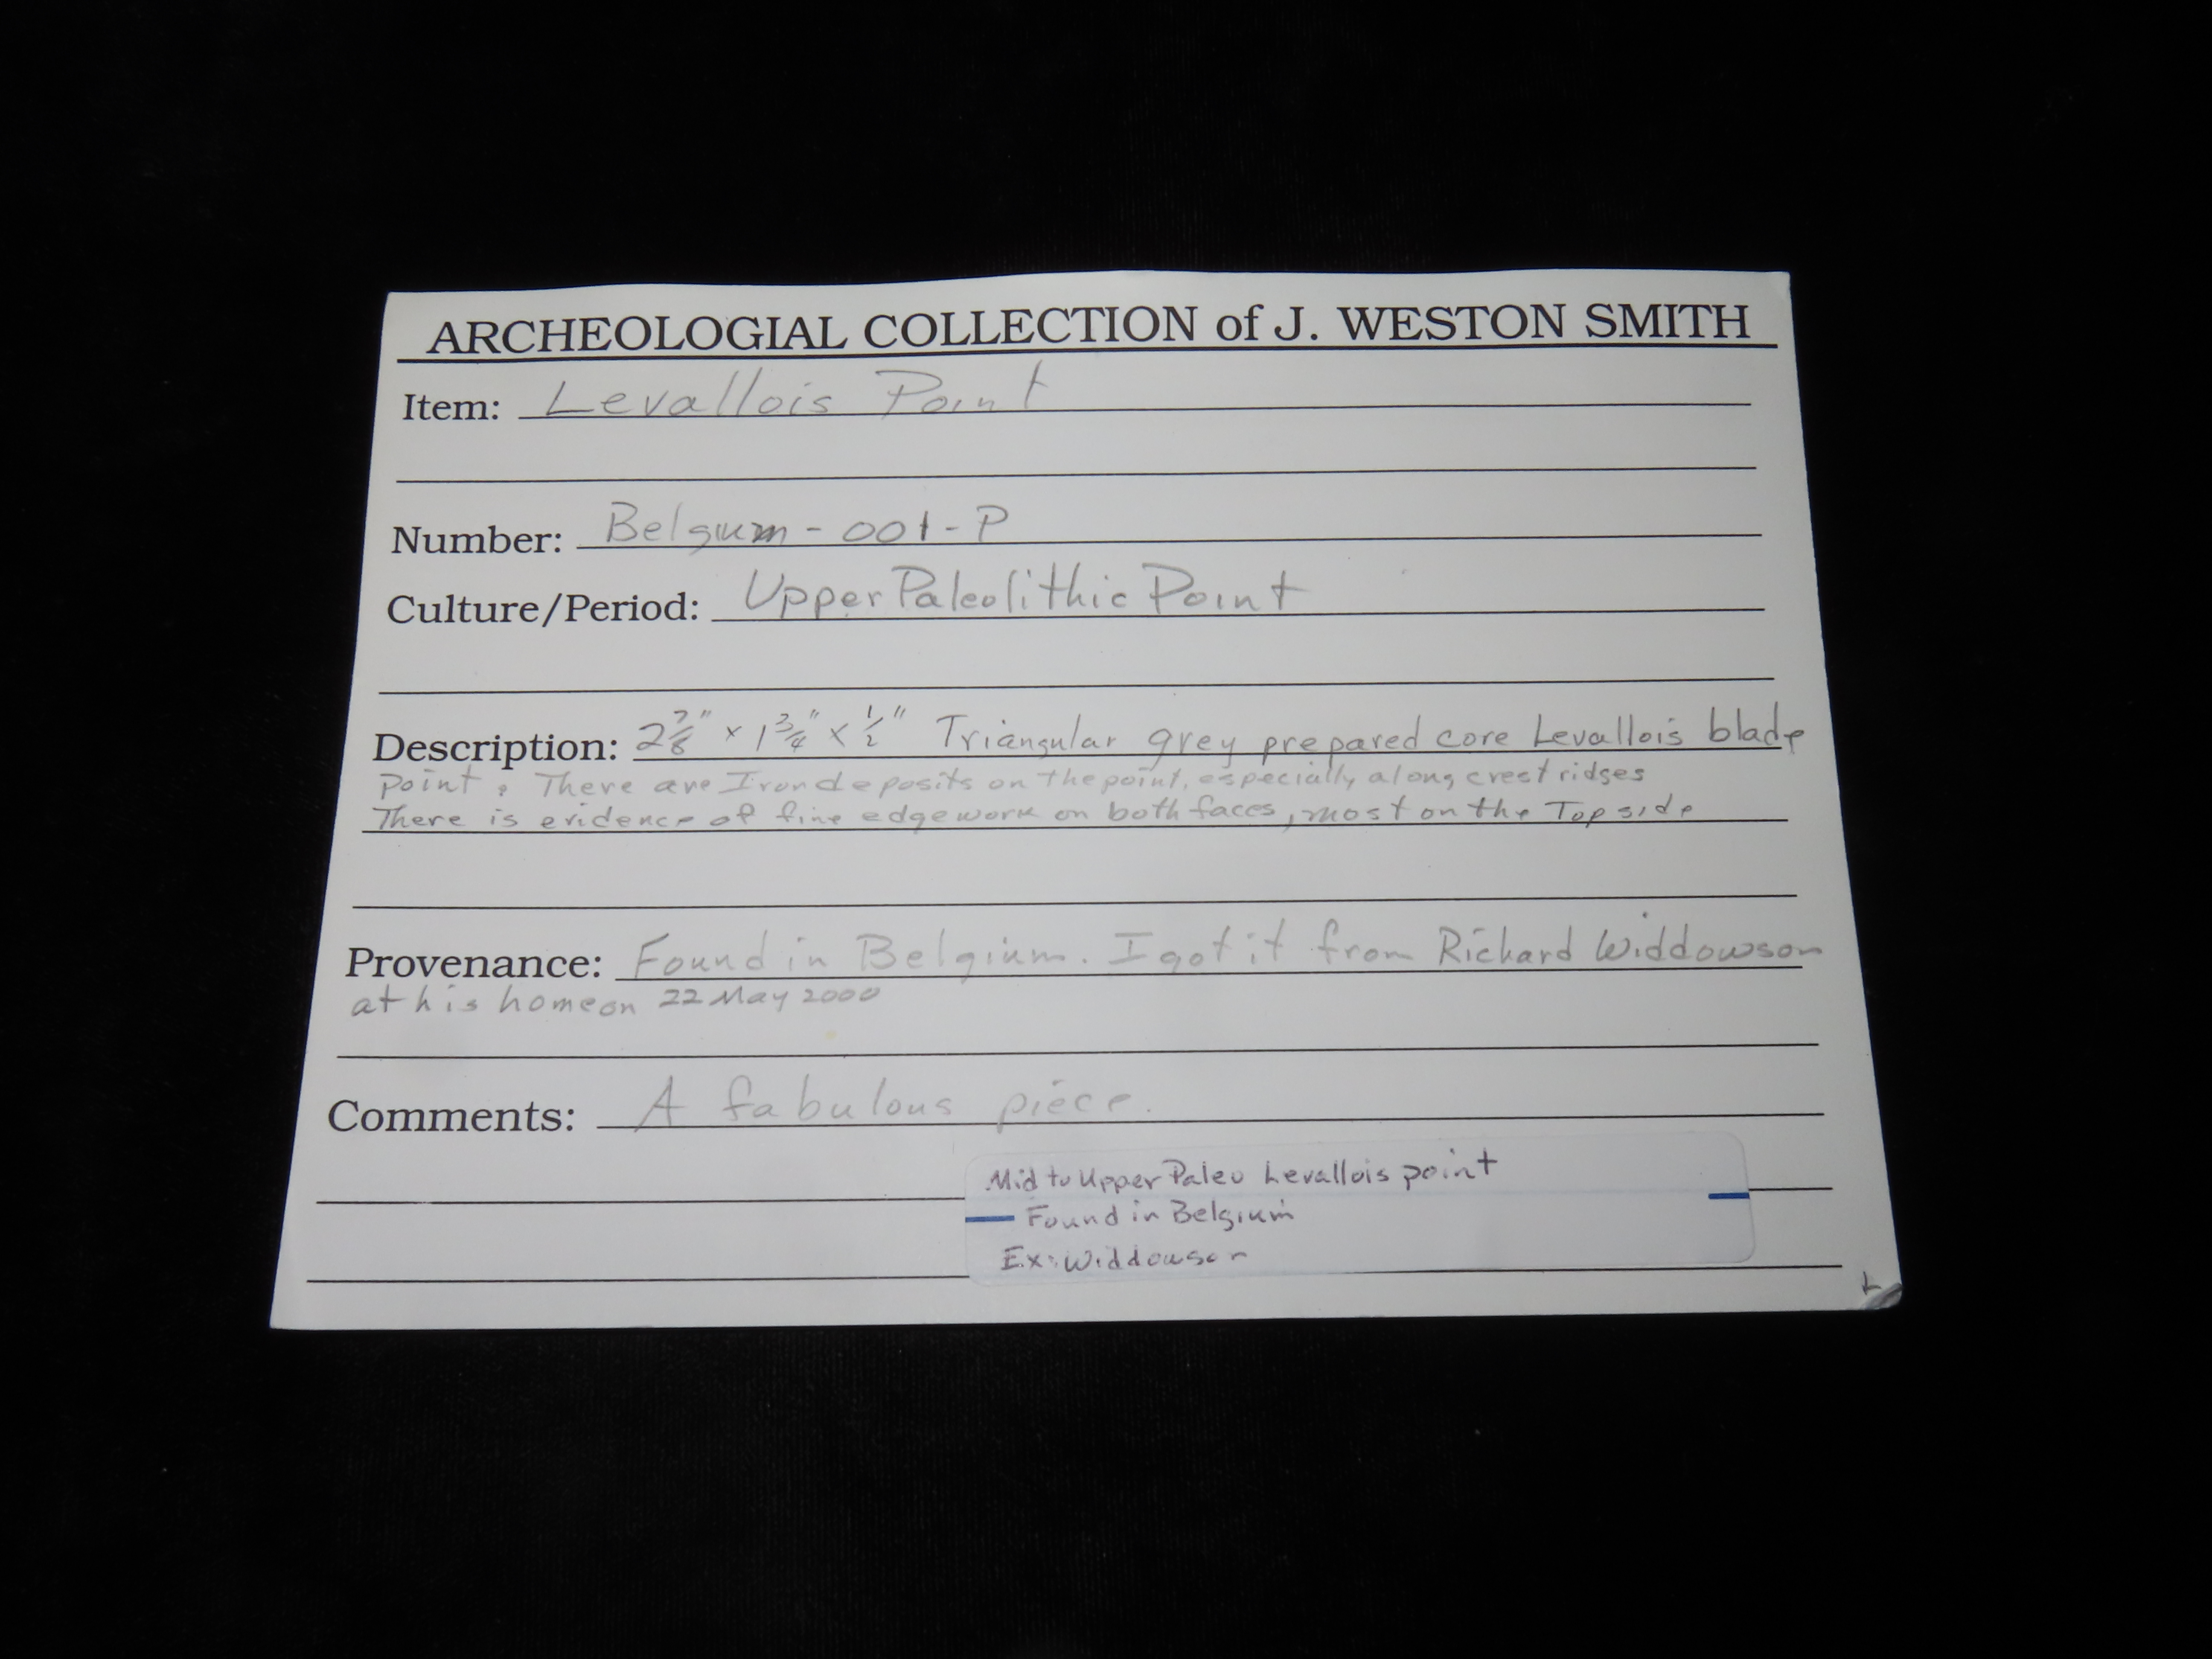 ARCHEOLOGIAL COLLECTION of J. WESTON SMITH
Item: Levallois Point
Number: Belgium - 001 - P
Culture/Period: Upper Paleolithic Point
Description: 2 7/8" x 1 3/4" x 1/2" Triangular grey prepared core Levallois blade
point. There are Iron deposits on the point, especially along crest ridges
There is evidence of fine edgework on both faces, most on the Top side
Provenance: Found in Belgium. I got it from Richard Widdowson
at his home on 22 May 2000
Comments: A fabulous piece.
Mid to Upper Paleo Levallois point
Found in Belgium
Ex: Widdowson